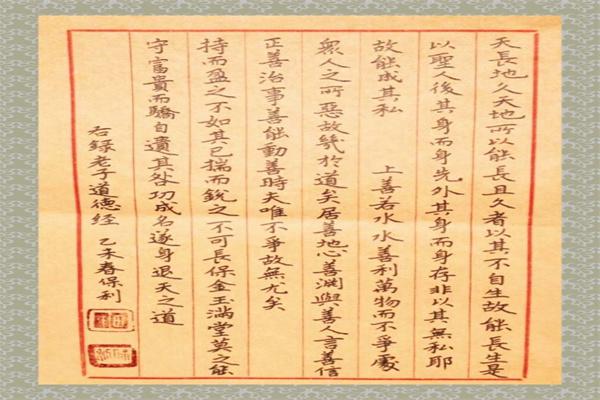 天長地久天地所以能長且久者以其不自生故能長生是
以聖人後其身而身先外其身而身存非以其無私耶
故能成其私 上善若水水善利萬物而不爭處
衆人之所惡故幾於道矣居善地心善淵與善人言善信
正善治事善能動善時夫唯不爭故無尤矣
持而盈之不如其已揣而銳之不可長保金玉滿堂莫之能
守富貴而驕自遺其咎功成名遂身退天之道
右錄老子道德经 乙未春保利